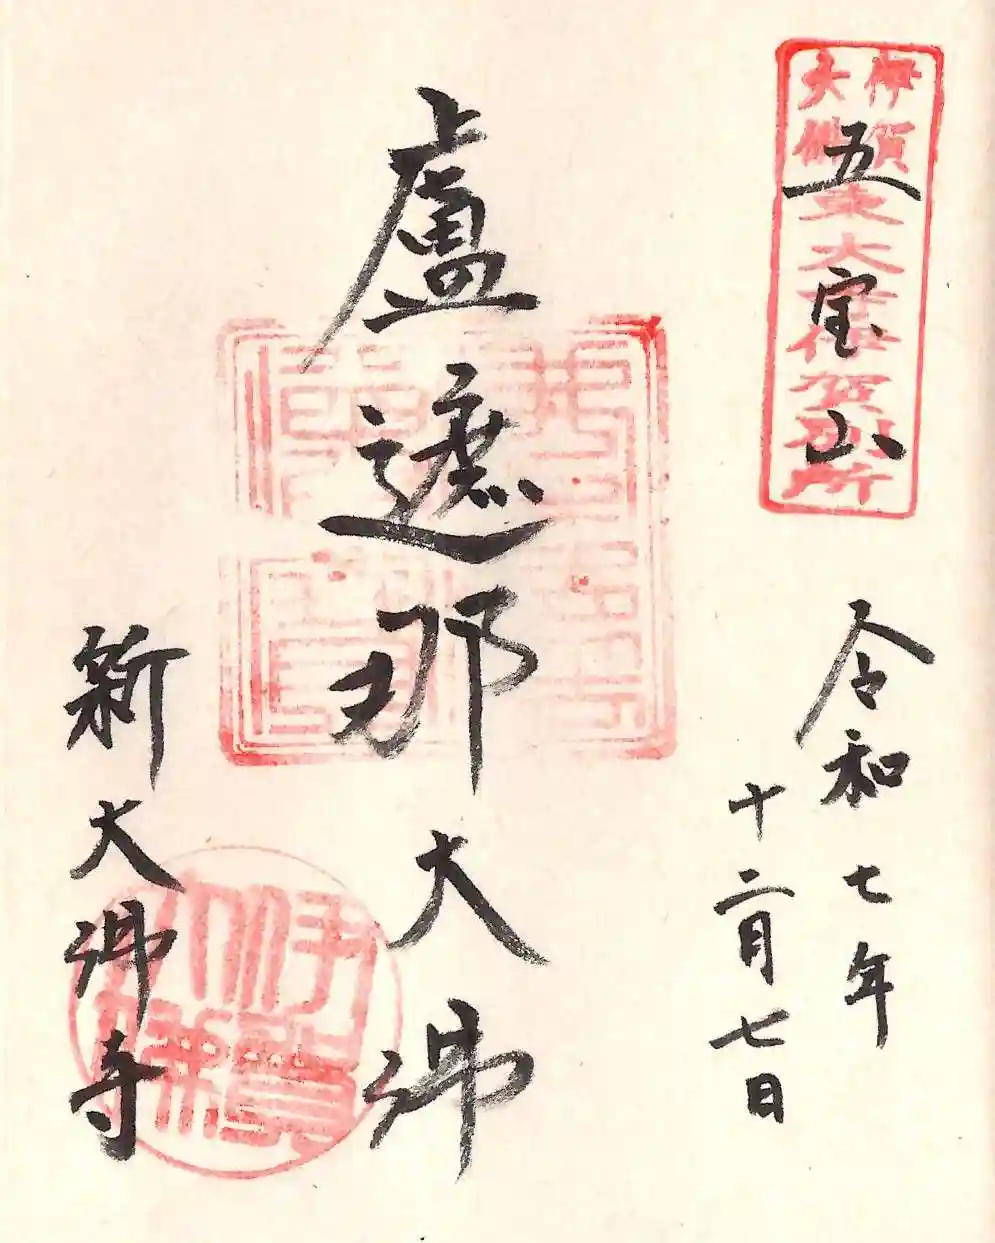 伊賀
大佛
東大寺伊賀別所
五宝山
令和七年
十二月七日
盧遮那大佛
新大佛寺
伊賀
大佛